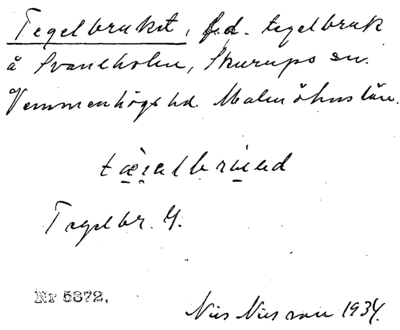 Tegelbruket, f.d. tegelbruk
å Svaneholm, Skurups sn.
Vemmenhögs hd. Malmöhus län.
Tegelbr. G.
Nr 5372.
Nils Nilsson 1934.